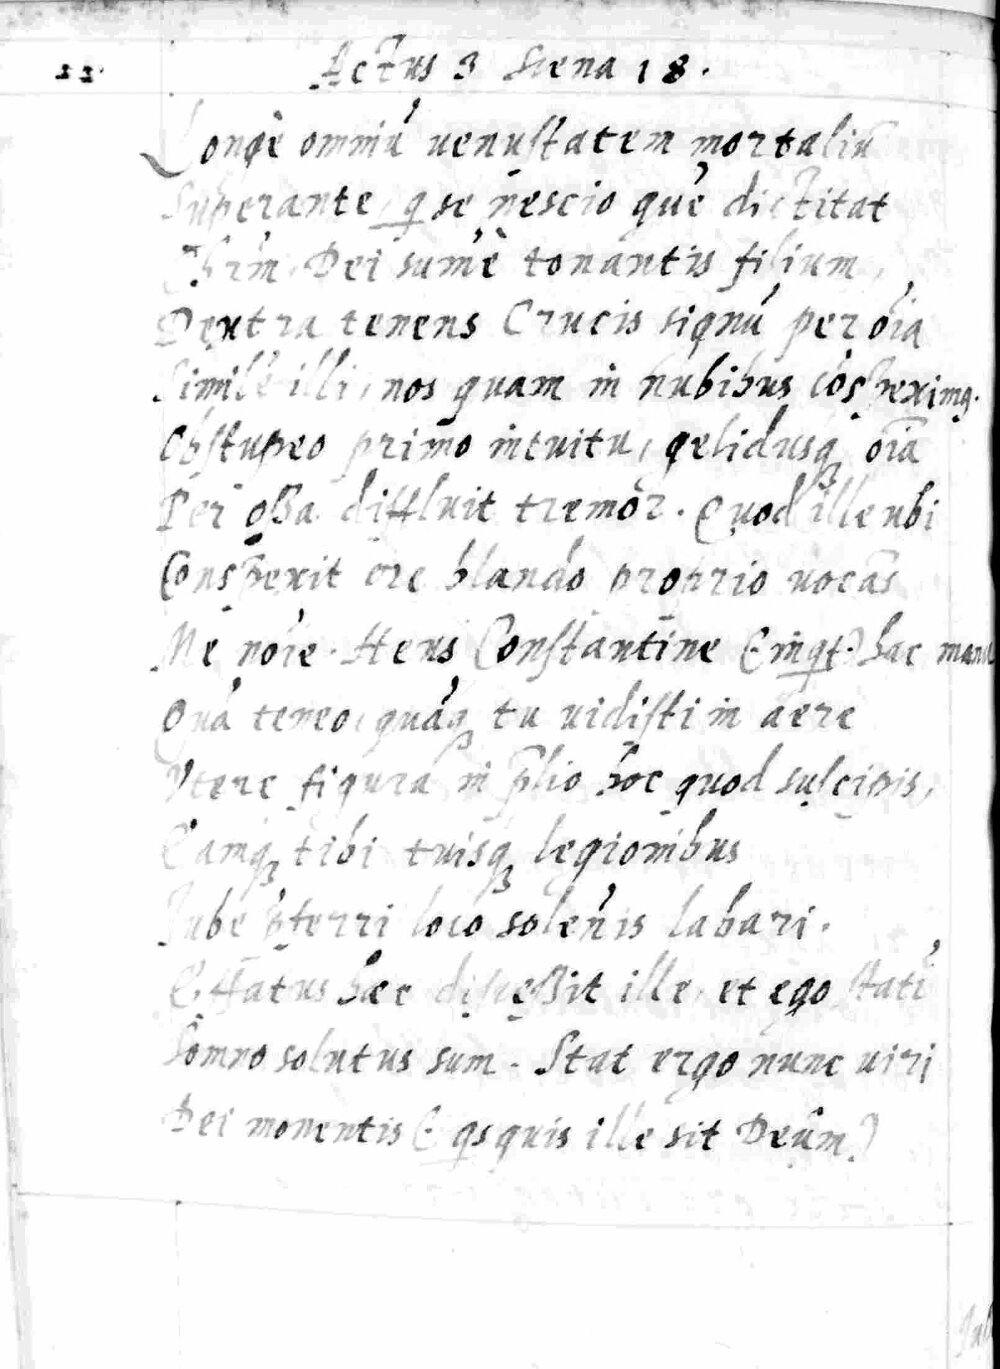 22.
Actus 3 Scena 18.
Longè omniũ uenustatem mortaliũ
Superante, q se nescio què dictitat
Chrm̃ Dei sum̃è tonantis filium,
Dextra tenens Crucis signũ per oĩa
Simile illi, nos quam in nubibus cõspeximꝰ.
Obstupeo primo intuitu, gelidusqꝫ oĩa
Per oßa diffluit tremor. Quod ille ubi
Conspexit ore blando proprio uocãs
Me nõie. Heus Constantine (inqt) hac manu
Quã teneo, quãqꝫ tu uidisti in aere
Vtere figura in p̃lio hoc quod suscipis,
Eamqꝫ tibi tuisqꝫ legionibus
Iube p̃ferri loco solẽnis labari.
Effatus hæc disceßit ille, et ego statĩ
Somno solutus sum. Stat ergo nunc uiri
Dei monentis (qsquis ille sit Deûm)